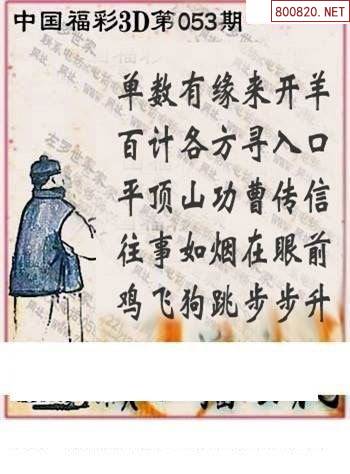 中国福彩3D第053期
800820.NET
单数有缘来开羊
百计各方寻入口
平顶山功曹传信
往事如烟在眼前
鸡飞狗跳步步升